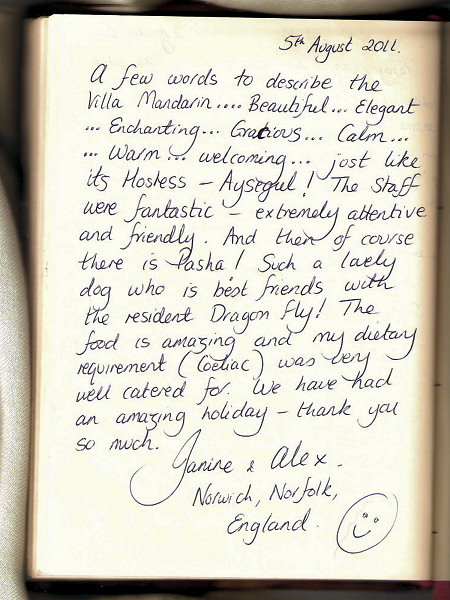 5th August 2011.
A few words to describe the
Villa Mandarin.... Beautiful... Elegant
... Enchanting... Gracious... Calm...
... Warm... welcoming... just like
its Hostess - Aysegul! The staff
were fantastic - extremely attentive
and friendly. And then of course
there is Pasha! Such a lovely
dog who is best friends with
the resident Dragon Fly! The
food is amazing and my dietary
requirement (Coeliac) was very
well catered for. We have had
an amazing holiday - thank you
so much.
Janine & Alex.
Norwich, Norfolk,
England.